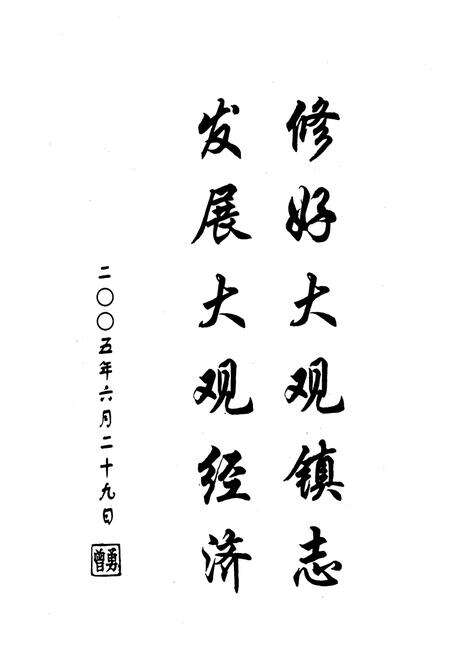 修好大观镇志
发展大观经济
二〇〇五年六月二十九日
曾勇